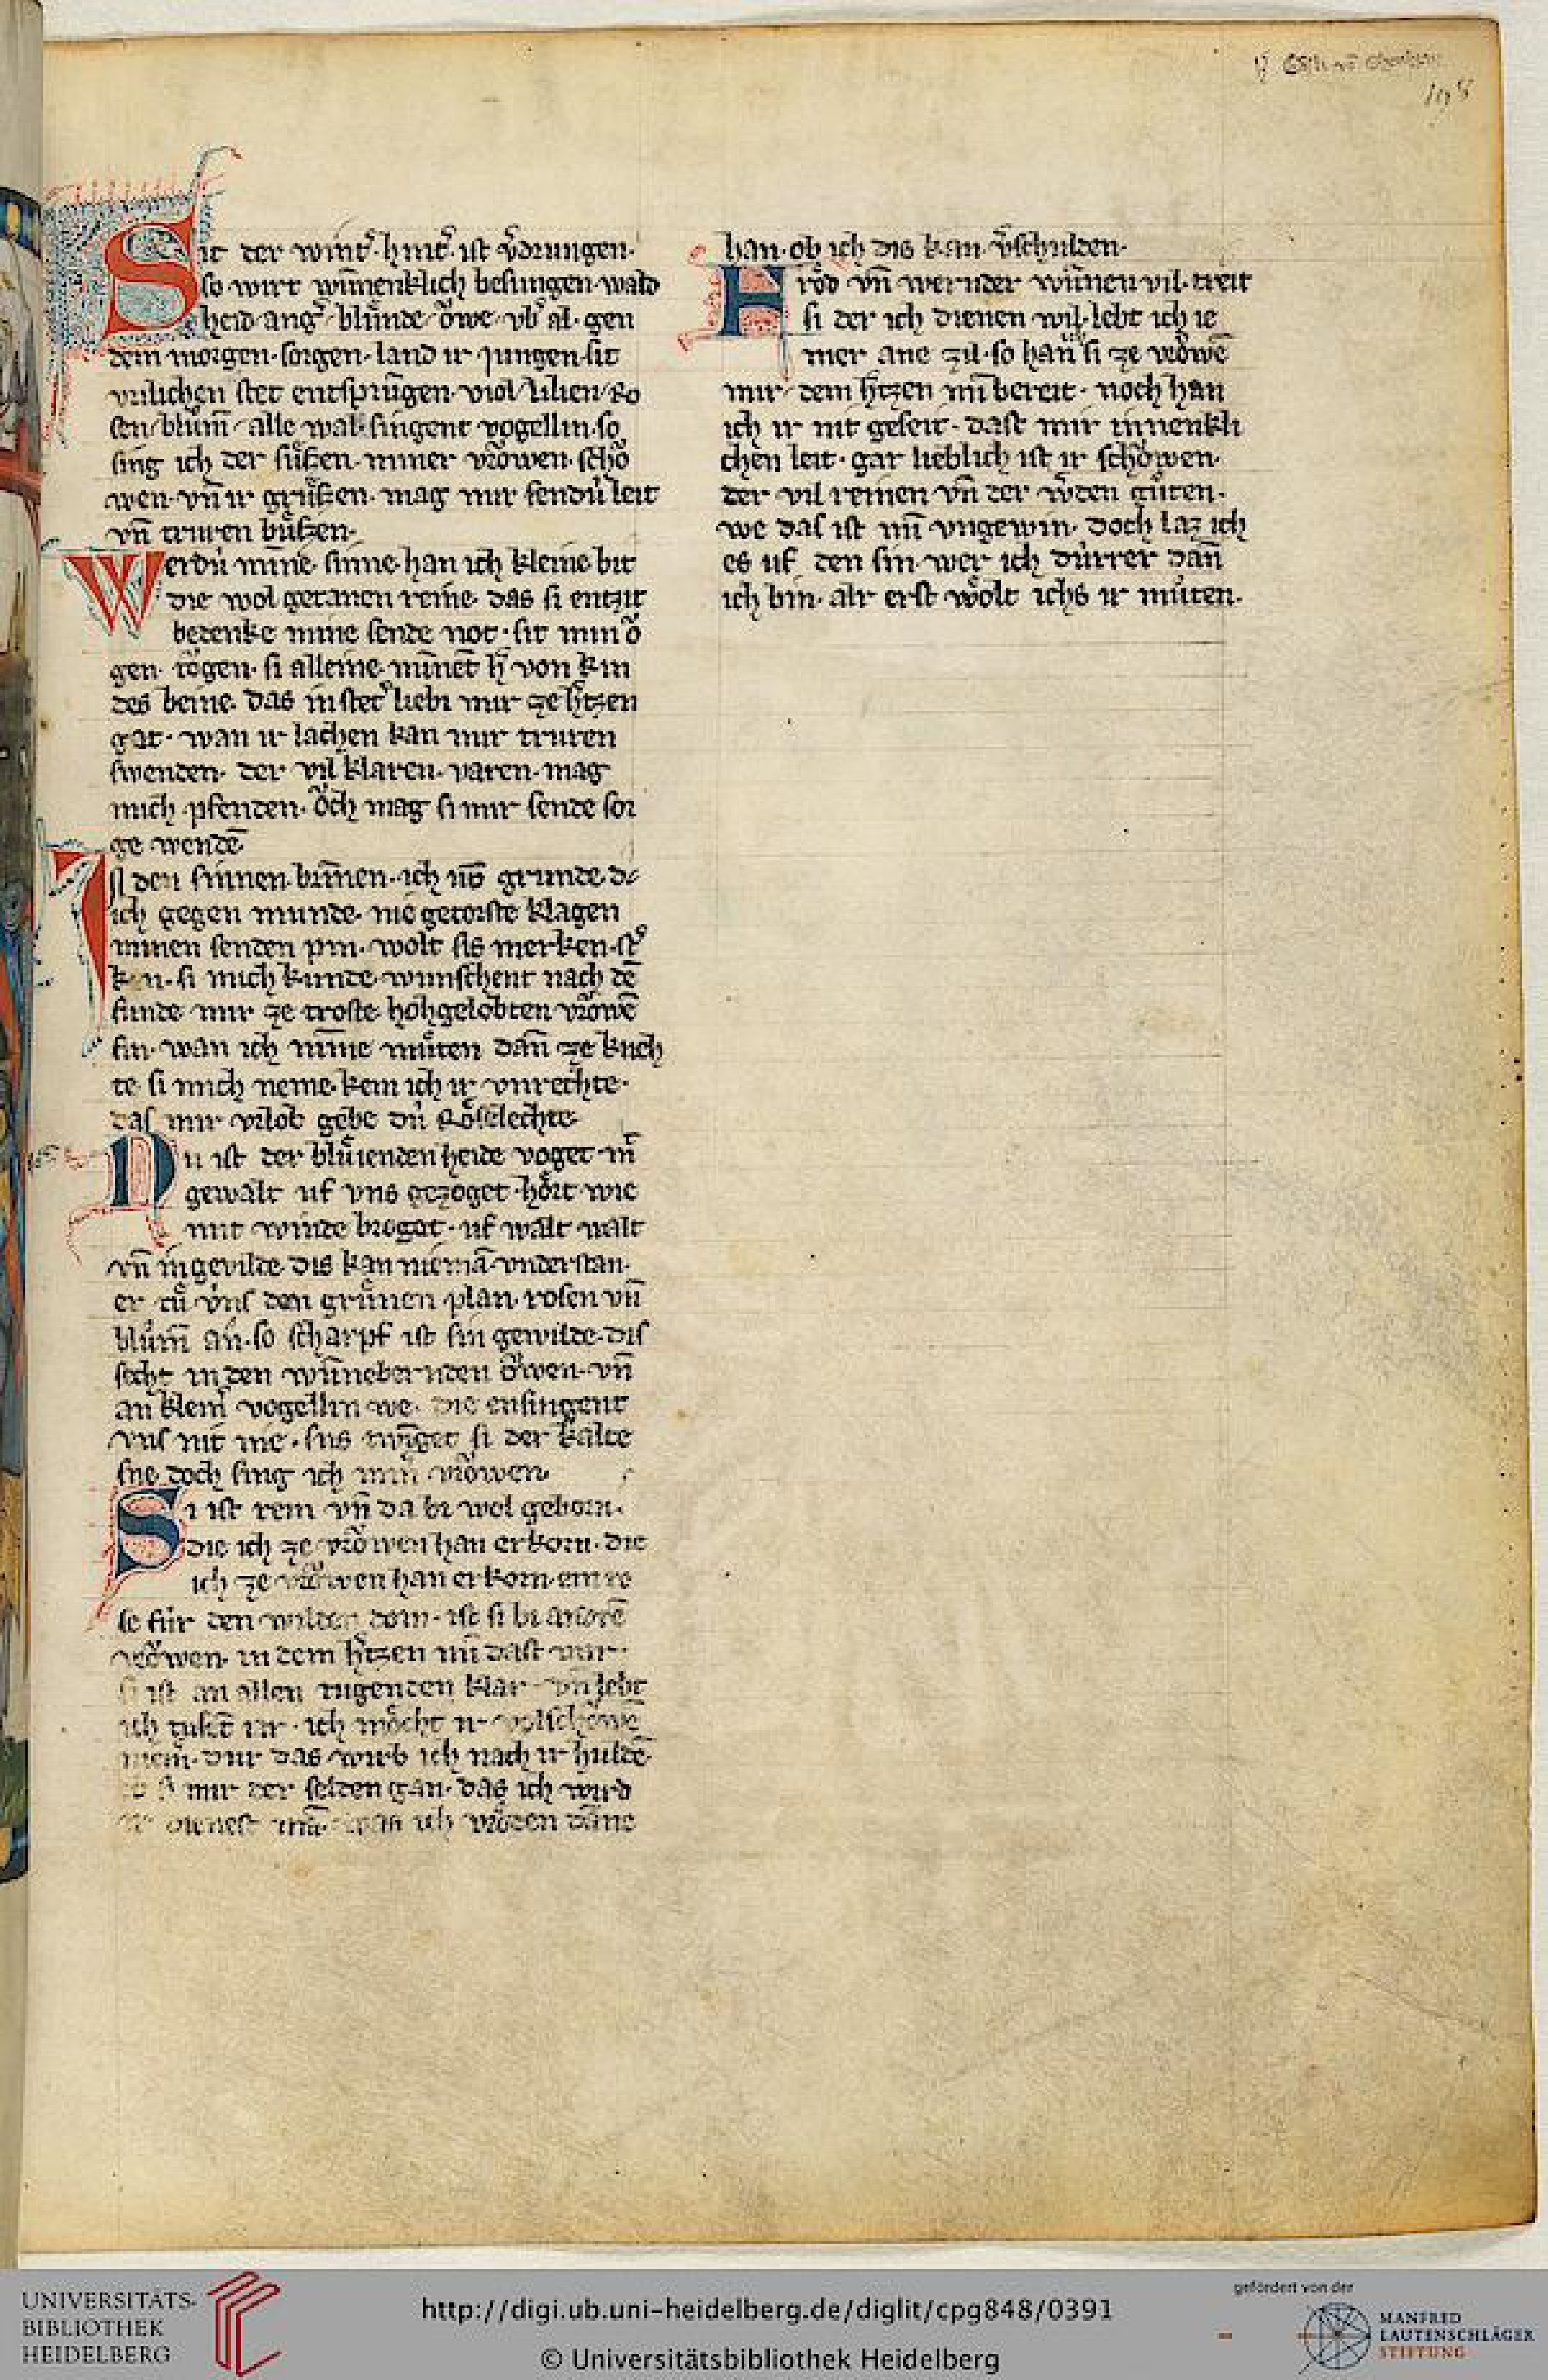 Sit der wintˀ hinͣt ist v̾drungen·
so wirt wu̅nenklich besungen wald
heid angˀ blu̍nde ȯwe vbˀ al· gen
dem morgen· sorgen· land ir jungen· sit
vrilichen stet entspru̅gen· viol lilien Ro
sen blům̅ alle wal singent vogellin· so
sing ich der sůssen miner vrȯwen· schȯ
wen· vn̅ ir grůssen· mag mir sendu̍ leit
vn̅ truren bůssen·
Werdu̍ mi̅ne sinne han ich kleine bit
die wol getanen reine· das si entzit
bedenke mine sende not· sit min ȯ
gen· tȯgen· si alleine· mi̅net h̾ von kin
des beine· das in stetˀ liebi mir ze h̾tzen
gat· wan ir lachen kan mir truren
swenden· der vil klaren· varen· mag
mich pfenden· ȯch mag si mir sende sor
ge wende̅
In den sinnen bri̅nen· ich vo̅ grunde· dc
ich gegen munde· nie getorste klagen
minen senden pin· wolt sis merken· stˀ
ken· si mich kunde· wunschent nach de̅
funde mir ze troste hohgelobten vrȯwe̅
sin· wan ich nim̅e můten dan̅ ze knech
te si mich neme· kem ich ir vnrechte·
das mir vrlob gebe du̍ Rȯselechte
Nu ist der blu̍ienden heide voget mit
gewalt uf vns gezoget· hȯrt wie
mit winde broget· uf walt walt
vn̅ in gevilde· dis kan niema̅ vnderstan·
er tů vns den grůnen plan· rosen vn̅
blům̅ an· so scharpf ist sin gewilde· dis
secht in den wu̅nebernden ȯwen· vn̅
an klein̅ vogellin we· die ensingent
vns nit me· sus twi̅get si der kalte
sne doch sing ich min̅ vrȯwen·
Si ist rein vn̅ da bi wol geborn·
die ich ze vrȯwen han erkorn· die
ich ze vrȯwen han erkorn· ein ro
se fu̍r den wilden dorn· ist si bi andre̅
vrȯwen· in dem h̾tzen min dast war·
si ist an allen tugenden klar· vn̅ lebt
ich tuse̅t iar· ich mȯcht ir volschȯwe̅
niem̅· dur das wirb ich nach ir hulde̅·
ob si mir der selden gan· das ich wird
ir dienest ma̅· was ich vrȯden da̅ne
han· ob ich dis kan v̾schulden·
Frȯd vn̅ wernder wu̅nen vil· treit
si der ich dienen wil· lebt ich ie
mer ane zil· so han̅ si ze vrȯwe̅
mir dem h̾tzen min bereit· noch han
ich ir nit geseit· dast mir innenkli
chen leit· gar lieblich ist ir schȯwen·
der vil reinen vn̅ der w̾den gůten·
we das ist min vngewin· doch laz ich
es uf den sin· wer ich du̍rrer dan̅
ich bin· alr erst wȯlt ichs ir můten·
UNIVERSITÄTS-
BIBLIOTHEK
HEIDELBERG
http://digi.ub.uni-heidelberg.de/diglit/cpg848/0391
© Universitätsbibliothek Heidelberg
gefördert von der
MANFRED
LAUTENSCHLÄGER
STIFTUNG